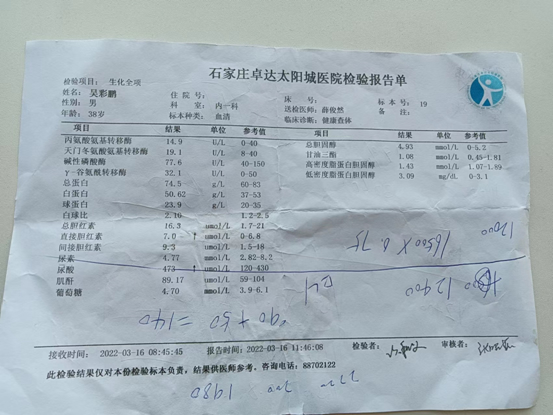 石家庄卓达太阳城医院检验报告单
检验项目: 生化全项
姓名: 吴彩鹏 住院号: 床 号: 标本号: 19
性别: 男 科 室: 内一科 送检医师: 薛俊然 备 注:
年龄: 38岁 标本种类: 血清 临床诊断: 健康查体
项目 结果 单位 参考值 项目 结果 单位 参考值
丙氨酸氨基转移酶 14.9 U/L 0-40 总胆固醇 4.93 mmol/L 0-5.2
天门冬氨酸氨基转移酶 19.1 U/L 8-40 甘油三酯 1.08 mmol/L 0.45-1.81
碱性磷酸酶 77.6 U/L 40-150 高密度脂蛋白胆固醇 1.43 mmol/L 1.07-1.89
γ-谷氨酰转移酶 32.1 U/L 0-50 低密度脂蛋白胆固醇 3.09 mg/dL 0-3.1
总蛋白 74.5 g/L 60-83
白蛋白 50.62 g/L 37-53
球蛋白 23.9 g/L 20-35
白球比 2.10 1.2-2.5
总胆红素 16.3 umol/L 1.7-21
直接胆红素 7.0 ↑ umol/L 0-6.8
间接胆红素 9.3 umol/L 1.5-18
尿素 4.77 mmol/L 2.82-8.2
尿酸 473 ↑ umol/L 120-430
肌酐 89.17 umol/L 59-104
葡萄糖 4.70 mmol/L 3.9-6.1
16500 X 0.75
12000
12400
90+50=140
接收时间: 2022-03-16 08:45:45 报告时间: 2022-03-16 11:46:08 检验者: 审核者:
此检验结果仅对本份检验标本负责, 结果供医师参考, 咨询电话: 88702122
1980